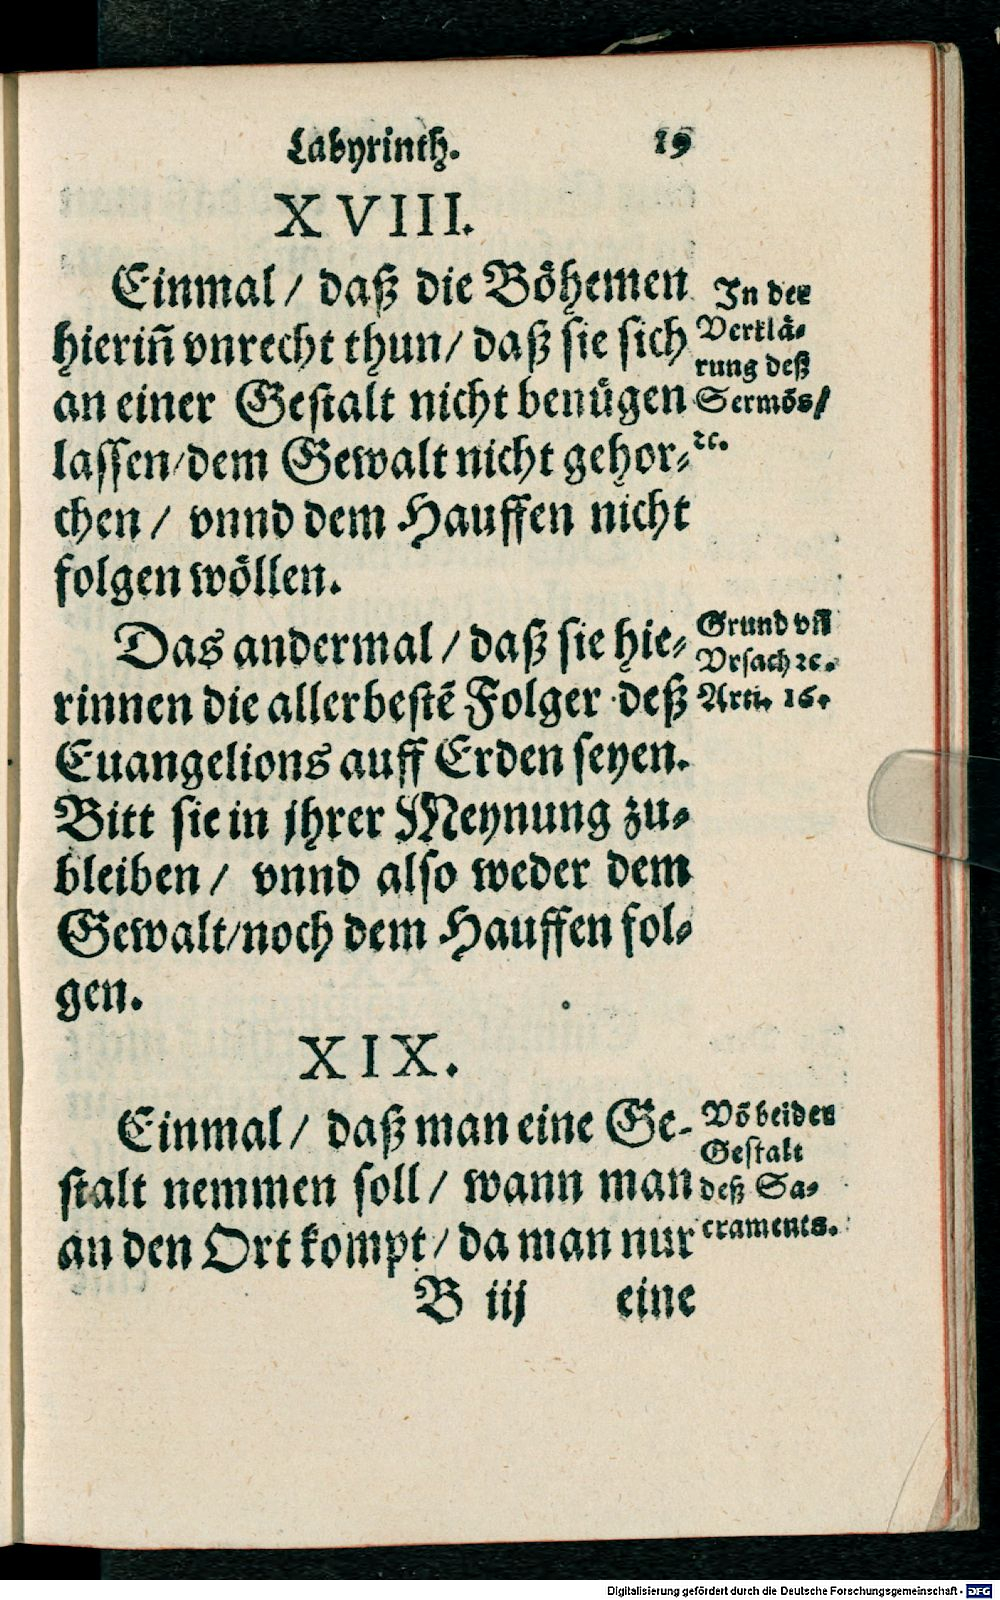 Labyrinth. 19
XVIII.
Einmal / daß die Böhemen
hieriñ vnrecht thun / daß sie sich
an einer Gestalt nicht benügen
lassen / dem Gewalt nicht gehor-
chen / vnnd dem Hauffen nicht
folgen wöllen.
In der
Verklä-
rung deß
Sermōs /
ꝛc.
Das andermal / daß sie hie-
rinnen die allerbestē Folger deß
Euangelions auff Erden seyen.
Bitt sie in jhrer Meynung zu-
bleiben / vnnd also weder dem
Gewalt / noch dem Hauffen fol-
gen.
Grund vñ
Vrsach ꝛc.
Arti. 16.
XIX.
Einmal / daß man eine Ge-
stalt nemmen soll / wann man
an den Ort kompt / da man nur
Vō beider
Gestalt
deß Sa-
craments.
B iij eine
Digitalisierung gefördert durch die Deutsche Forschungsgemeinschaft - DFG